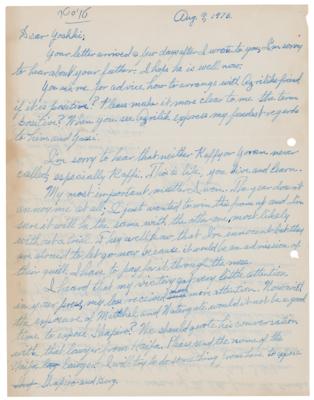 Aug. 9, 1976.
Dear Yoskki:
Your letter arrived a few days after I wrote to you. I'm sorry
to hear about your father. I hope he is well now.
You ask me for advice, how to arrange with Azrik friend
if it is positive? Please make it more clear to me the term
"positive"? When you see Azrik express my fondest regards
to him and
I'm sorry to hear that neither Raffy or Yoram never
called, especially Raffi. This is life, you live and learn.
My most important matter I won. The year does not
annoy me at all; I just wanted to win the pain and I'm
sure it will be the same with the other one, most likely
without a trial. They well know that I'm innocent but they
are afraid to let go now because it would be an admission of
their guilt. I have to pay for it through the nose.
I heard that my victory got very little attention
in your press, my loss received much more attention. Now with
the exposure of Mitchel and Watergate would it not be a good
time to expose Shapiro? We should quote his conversation
with that lawyer from Haifa. Please send the name of the
Haifa lawyer. I will try to do something from here to expose
Shapiro and Burg.